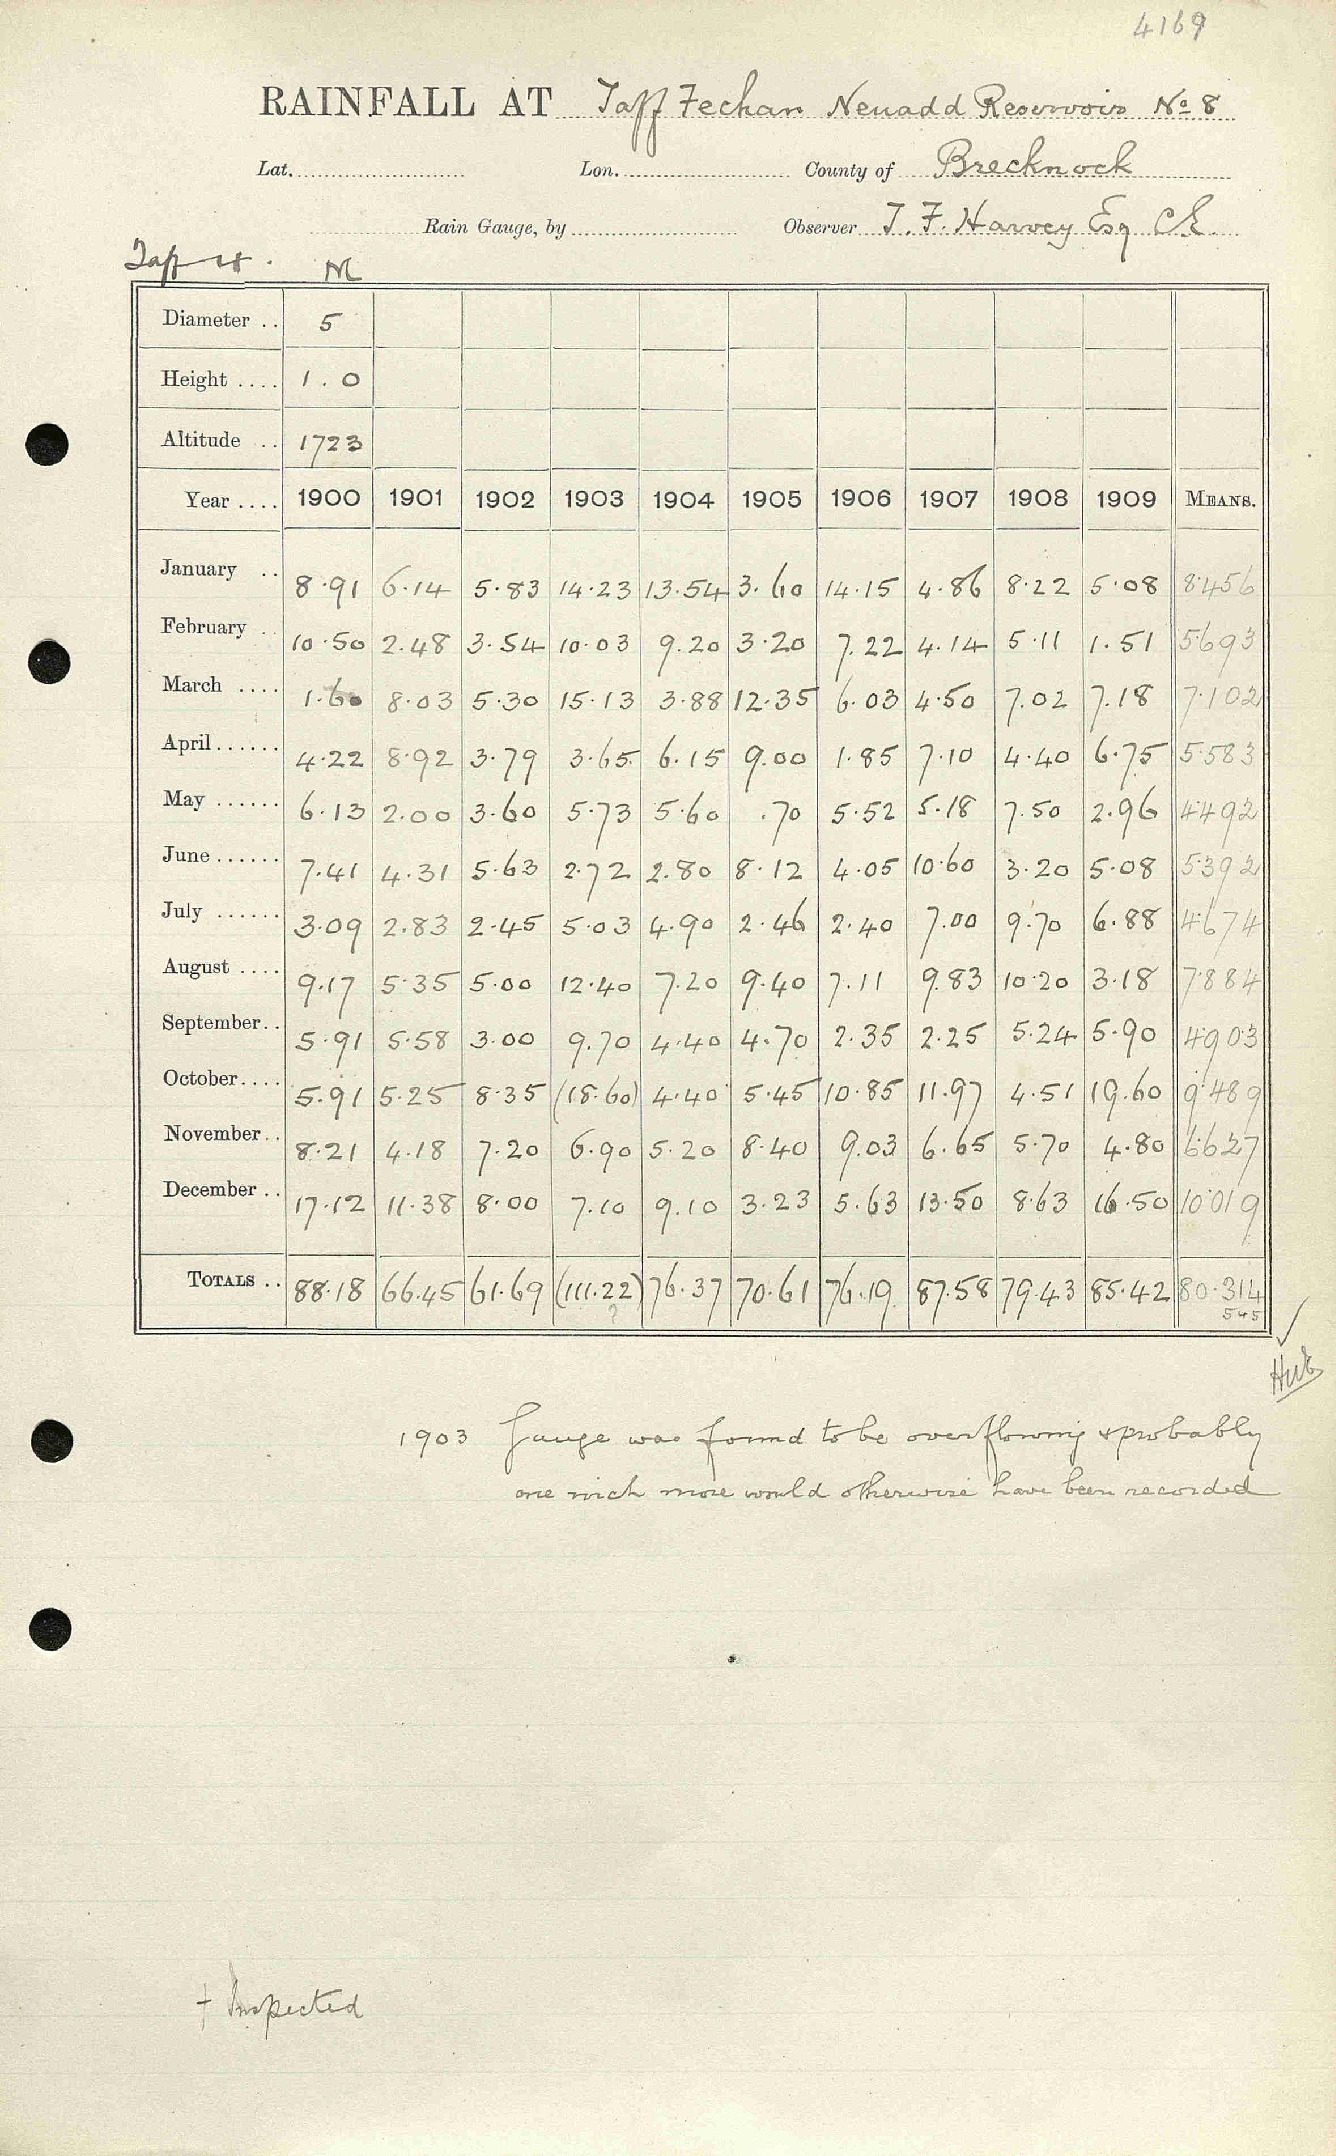 4169
RAINFALL AT Taff Fechan Neuadd Reservoir No 8
Lat. Lon. County of Brecknock
Rain Gauge, by Observer T. F. Harvey Esq C.E.
Taff M
Diameter .. 5
Height .... 1.0
Altitude .. 1723
Year .... 1900 1901 1902 1903 1904 1905 1906 1907 1908 1909 MEANS.
January .. 8.91 6.14 5.83 14.23 13.54 3.60 14.15 4.86 8.22 5.08 8.456
February .. 10.50 2.48 3.54 10.03 9.20 3.20 7.22 4.14 5.11 1.51 5.693
March .... 1.60 8.03 5.30 15.13 3.88 12.35 6.03 4.50 7.02 7.18 7.102
April ...... 4.22 8.92 3.79 3.65 6.15 9.00 1.85 7.10 4.40 6.75 5.583
May ...... 6.13 2.00 3.60 5.73 5.60 .70 5.52 5.18 7.50 2.96 4.492
June ...... 7.41 4.31 5.63 2.72 2.80 8.12 4.05 10.60 3.20 5.08 5.392
July ...... 3.09 2.83 2.45 5.03 4.90 2.46 2.40 7.00 9.70 6.88 4.674
August .... 9.17 5.35 5.00 12.40 7.20 9.40 7.11 9.83 10.20 3.18 7.884
September .. 5.91 5.58 3.00 9.70 4.40 4.70 2.35 2.25 5.24 5.90 4.903
October .... 5.91 5.25 8.35 (18.60) 4.40 5.45 10.85 11.97 4.51 19.60 9.489
November .. 8.21 4.18 7.20 6.90 5.20 8.40 9.03 6.65 5.70 4.80 6.627
December .. 17.12 11.38 8.00 7.10 9.10 3.23 5.63 13.50 8.63 16.50 10.019
TOTALS .. 88.18 66.45 61.69 (111.22) 76.37 70.61 76.19 87.58 79.43 85.42 80.314
? 545
1903 Gauge was found to be overflowing & probably
one inch more would otherwise have been recorded
† Inspected